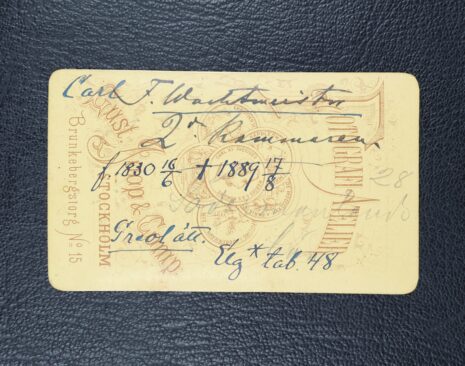 Carl F. Wachtmeister
2ª Kammaren
f. 1830 16/6 † 1889 17/8
28
Grevl. ätt.
Elg * tab. 48
FOTOGRAFI ATELIER
& Comp
STOCKHOLM
Brunkebergstorg No 15